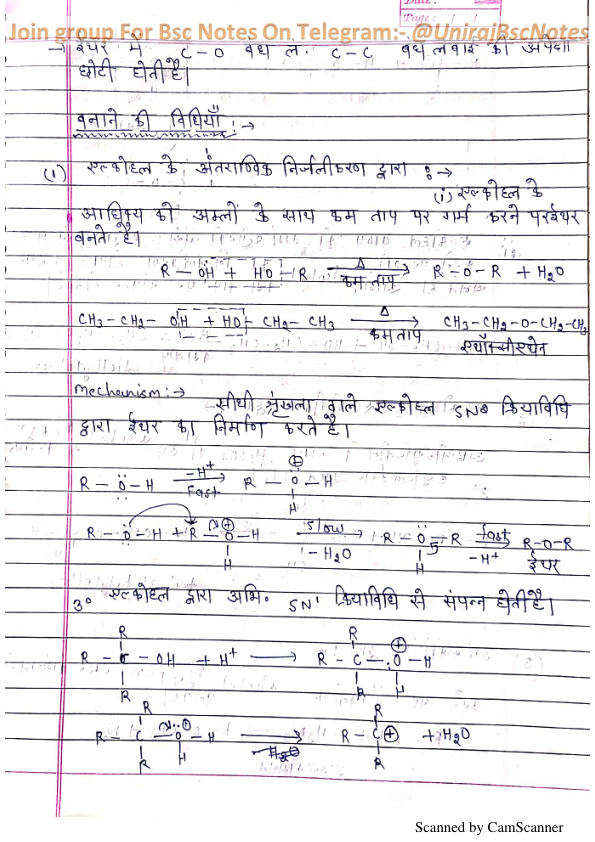 Date :
Page : / /
Join group For Bsc Notes On Telegram:-.@UnirajBscNotes
→ ईथर में C-O बंध ल. C-C बंध लंबाई की अपेक्षा
छोटी होती है।
बनाने की विधियाँ :→
(1) एल्कोहल के अंतराण्विक निर्जलीकरण द्वारा :→
(i) एल्कोहल के
आधिक्य को अम्लों के साथ कम ताप पर गर्म करने पर ईथर
बनते है।
R - OH + HO - R Δ कम ताप → R-O-R + H2O
CH3-CH2- OH + HO - CH2-CH3 Δ कम ताप → CH3-CH2-O-CH2-CH3
एथॉक्सीएथेन
mechanism :→ सीधी श्रृंखला वाले एल्कोहल SN² क्रियाविधि
द्वारा ईथर का निर्माण करते है।
R - Ö - H -H+ Fast → R - O - H
⊕
H
R - Ö - H + R - O - H slow -H2O → R - O - R fast -H+ → R-O-R
⊕
H H ईथर
3° एल्कोहल द्वारा अभि. SN' क्रियाविधि से संपन्न होती है।
R R
R - C - OH + H+ → R - C - O - H
⊕
R R H
R R
R - C - O - H → R - C⊕ + H2O
-H2O
R H R
Scanned by CamScanner